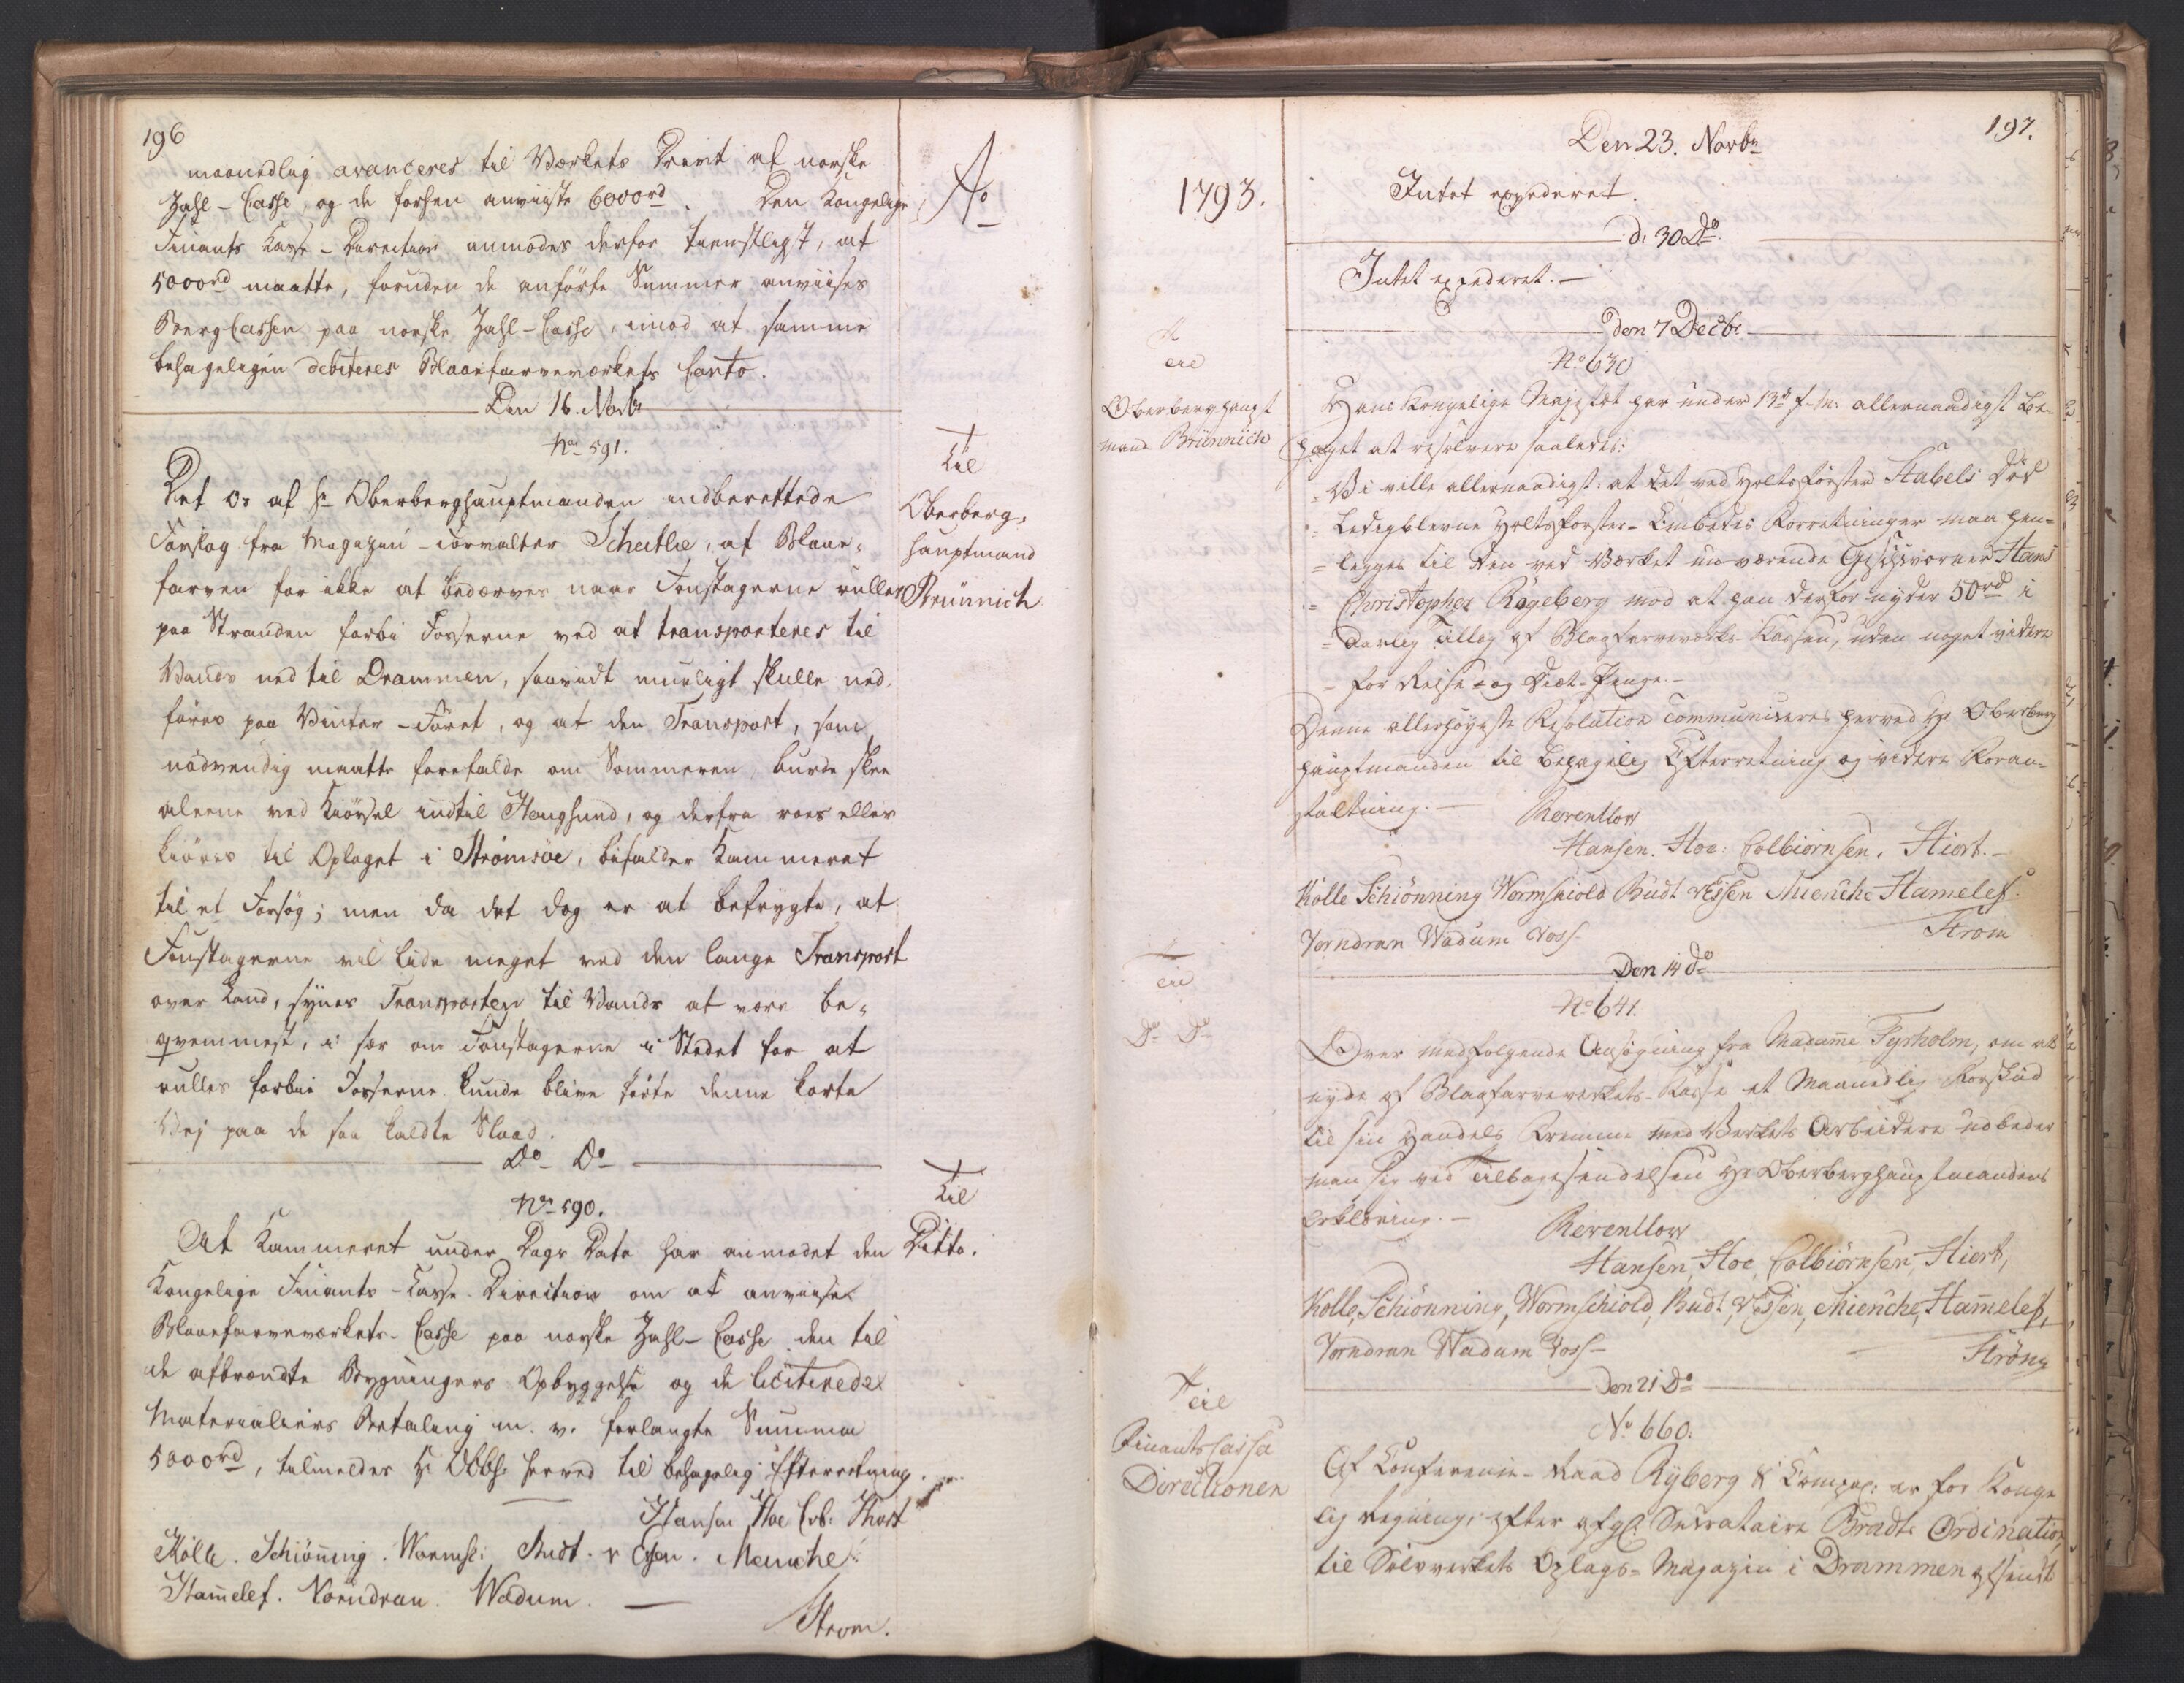 196
maanedlig avanceres til Værkets Drivt af norske
Zahl-Casse og de forhen anviiste 6000rd. Den Kongelige
Finants Kasse-Direction anmodes derfor tienstligst, at
5000rd maatte, foruden de anførte Summer anviises
BergCassen paa norske Zahl-Casse, imod at samme
behageligen debiteres Blaaefarveværkets Conto.
Den 16. Novbr
No 591.
Det os af Hr Oberberghauptmanden indberettede
Forslag fra Magazin-Forvalter Scheitlie, at Blaae-
farven for ikke at bedærves naar Foustagerne rulles
paa Stranden forbi Fosserne ved at transporteres til
Vands ned til Drammen, saavidt mueligt skulle ned-
føres paa Vinter-Føret, og at den Transport, som
nødvendig maatte forefalde om Sommeren, burde skee
aleene ved Kiørsel indtil Haugsund, og derfra roes eller
kiøres til Oplaget i Strømsøe, bifalder Kammeret
til et Forsøg; men da det dog er at befrygte, at
Foustagerne vil lide meget ved den lange Transport
over Land, synes Transporten til Vands at være be-
qvemmest, i sær om Foustagerne i Stedet for at
rulles forbi Fosserne kunde blive førte denne korte
Vej paa de saa kaldte Slaad.
Do Do
No 590.
At Kammeret under Dags Dato har anmodet den
Kongelige Finants-Casse-Direction om at anviise
Blaaefarveværkets-Casse paa norske Zahl-Casse den til
de afbrændte Bygningers Opbyggelse og de liciterede
Materialiers Betaling m. v. forlangte Summa
5000rd, tilmeldes Hr Obbh: herved til behagelig Efterretning.
Hansen Hoe Colb: Hiort
Kølle. Schiønning. Wormsk: Budt. v Essen. Meinche
Hamelef. Vorndran. Wadum. —
Strøm.
Ao
Til
Oberberg-
hauptmand
Brünnich
Til
Ditto.
1793.
Til
Oberberghaupt
mand Brünnich
Til
Do Do
Til
Finantscasse
Directionen
197.
Den 23. Novbr
Intet expederet.
d. 30 Do
Intet expederet. —
Den 7 Decbr.
No 630
Hans Kongelige Majestet har under 13de f. M. allernaadigst be-
haget at resolvere saaledes:
= Vi ville allernaadigst: at det ved Holtsførster Stabels Død
= Ledigblevne Holtsforster-Embedes Forretninger maa hen-
= legges til den ved Værket nu værende Geschworner Hans
= Christopher Rögeberg mod at han derfor nyder 50rd i
= Aarlig Tillæg af Blaafarveværks-Kassen, uden noget videre
= for Reise- og Diæt-Penge. —
Denne allerhøyeste Resolution communiseres herved Hr Oberberg
hauptmanden til behagelig Efterretning og videre Foran-
staltning. — Reventlow
Hansen. Hoe. Colbiørnsen. Hiort. —
Kölle Schiønning Wormskiold Budt v Essen Mienche Hamelef.
Vorndran Wadum Voss —
Strøm
Den 14 do
No 641.
Over medfølgende Ansøgning fra Madame Tyrholm, om at
nyde af Blaafarveverkets-Kasse et Maanedlig Forskud
til sin Handels Fremme med Verkets Arbeidere udbeder
man sig ved Tilbagesendelsen Hr Oberberghauptmandens
Erklæring. — Reventlow
Hansen, Hoe, Colbiørnsen, Hiort,
Kolle, Schiønning, Wormschiold, Budt, v Essen, Mienche, Hamelef,
Vorndran Wadum Voss — Strøm
Den 21 Do
No 660.
Af Conferenz-Raad Ryberg & Compag: er for Konge
lig Regning, efter afg. Secretaire Bradts Ordination,
til Sølvverkets Oplags-Magazin i Drammen afsendt